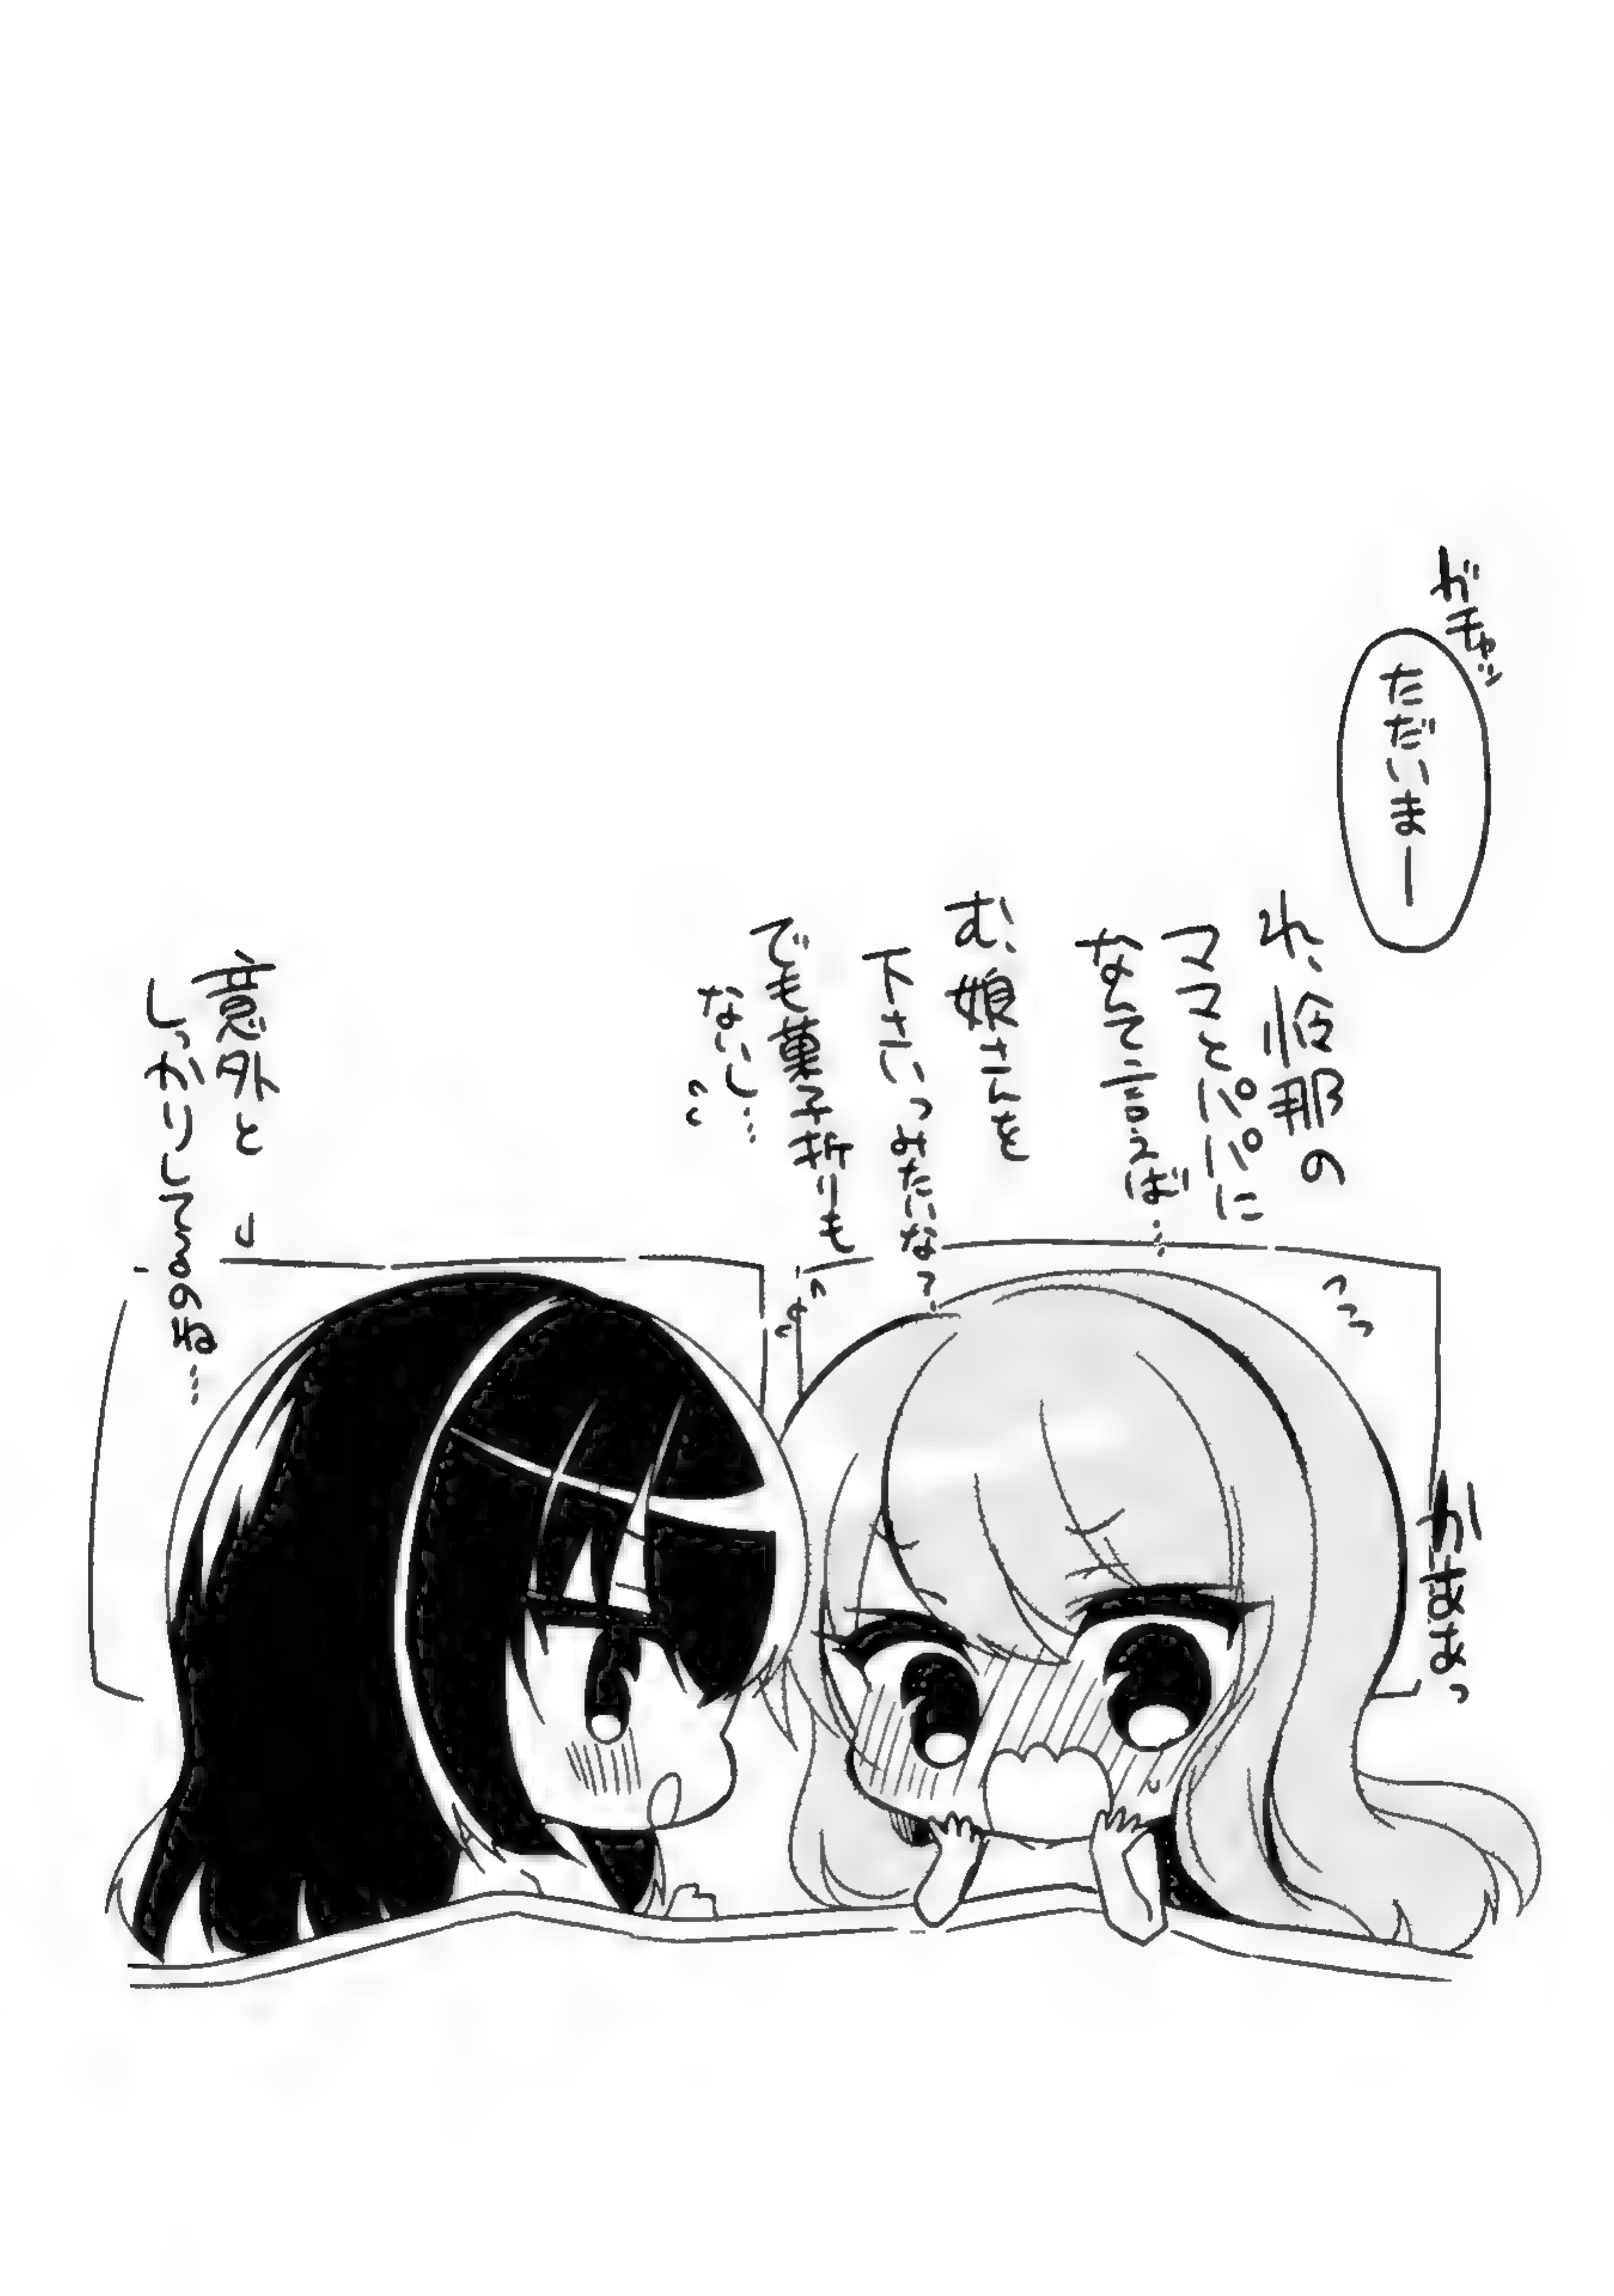 ガチャッ
ただいまー
れ、怜那の
ママとパパに
なんて言えば…
む、娘さんを
下さいっみたいな?
でも菓子折りも
ないし…
意外と
しっかりしてるのね…
がばっ